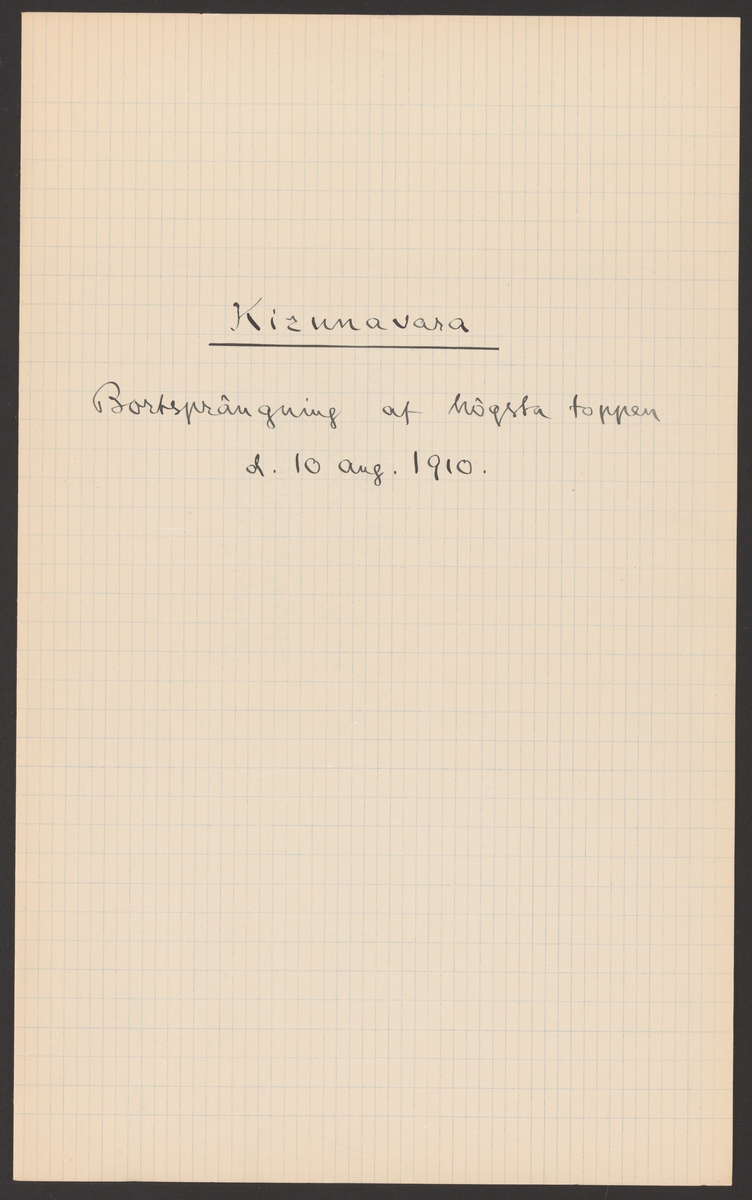 Kirunavara
Bortsprängning af högsta toppen
d. 10 aug. 1910.